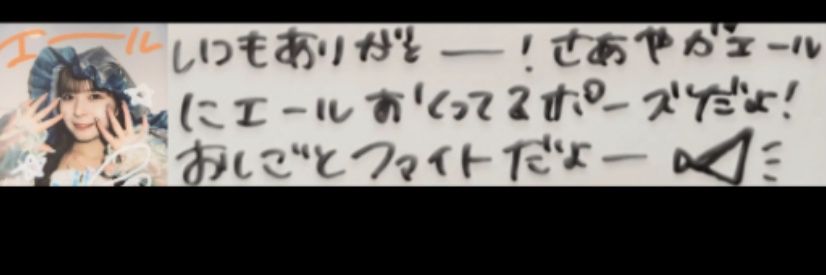 エール
いつもありがと――!さあやがエール
にエールおくってるポーズだよ!
おしごとファイトだよー